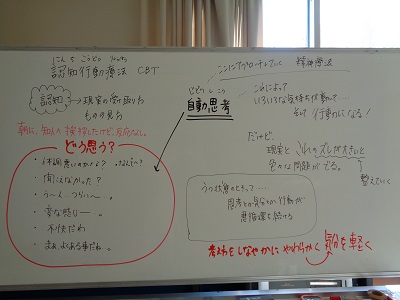 にんち こうどう りょうほう
認知行動療法 CBT
認知 → 現実の受け取り方
ものの見方
朝に、知人へ挨拶したけど、反応なし。
どう思う?
・体調悪いのかな?
・聞こえなかった?
・う〜ん…つらい…。
・変な感じ…。
・不快だわ
・まぁ
じどう しこう
自動思考
精神療法
これによって
いろいろな気持ちが動いて…
行動 になる!
だけど、
現実と これのズレが大きいと
色々な問題がでる。
整えていく
うつ状態のときって……
思考と気分と行動が
悪循環を続ける
考えをしなやかに やわらかく 気分を軽く